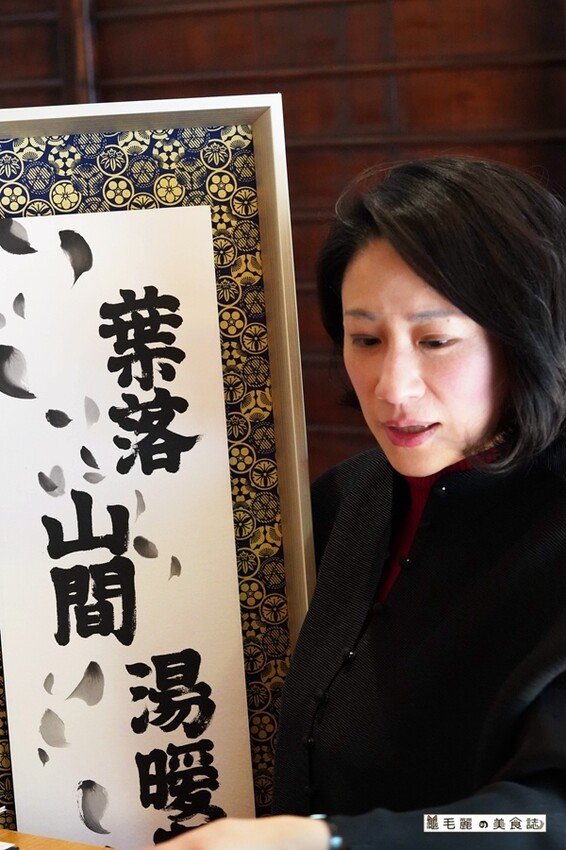 葉落
山間
湯曖
毛麗の美食誌